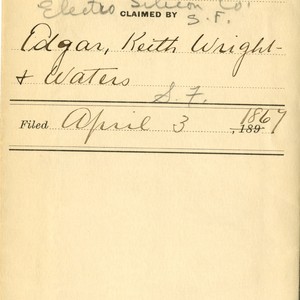 Electro Silicon Co.
CLAIMED BY
S.F.
Edgar, Keith Wright
& Waters
S.F.
Filed April 3 1867
, 189